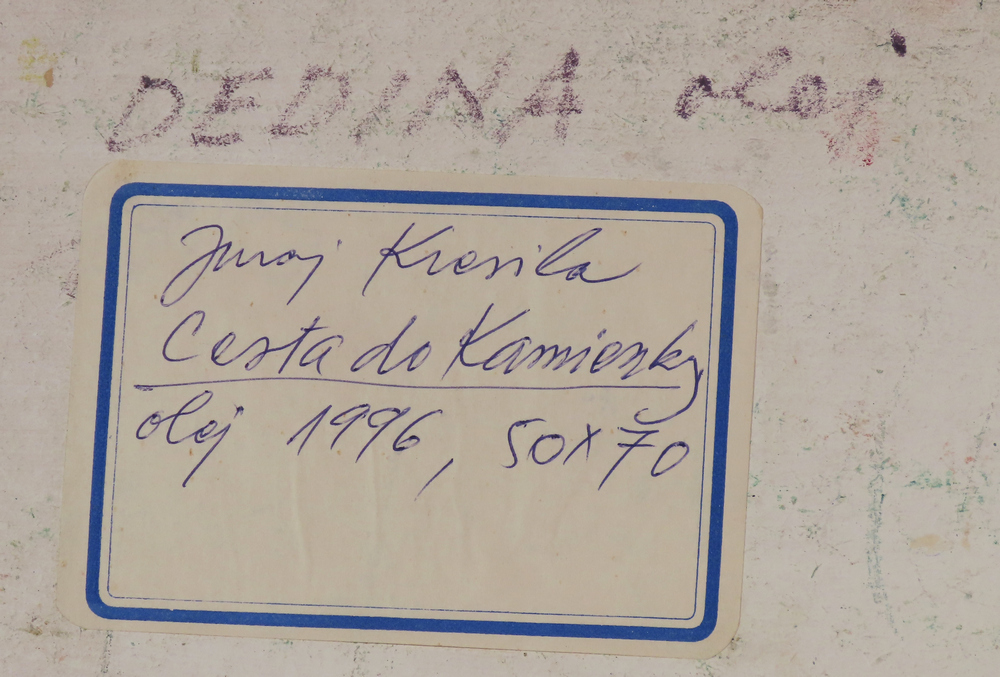 DEDINA olej
Juraj Kresila
Cesta do Kamienky
olej 1996, 50x70